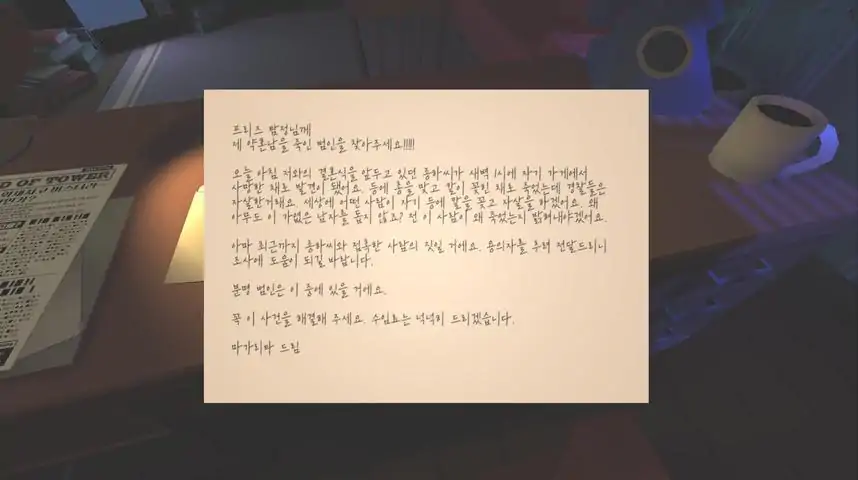 프리즈 탐정님께
제 약혼남을 죽인 범인을 찾아주세요!!!!!
오늘 아침 저와의 결혼식을 앞두고 있던 홍하씨가 새벽 1시에 자기 가게에서
사망한 채로 발견이 됐어요. 등에 총을 맞고 칼이 꽂힌 채로 죽었는데 경찰들은
자살한거래요. 세상에 어떤 사람이 자기 등에 칼을 꽂고 자살을 하겠어요. 왜
아무도 이 가엾은 남자를 돕지 않죠? 전 이 사람이 왜 죽었는지 밝혀내야겠어요.
아마 최근까지 홍하씨와 접촉한 사람의 짓일 거에요. 용의자를 추려 전달드리니
조사에 도움이 되길 바랍니다.
분명 범인은 이 중에 있을 거에요.
꼭 이 사건을 해결해 주세요. 수임료는 넉넉히 드리겠습니다.
마가리타 드림
D OF TOWER